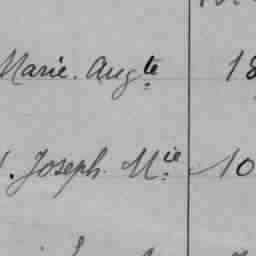 Marie. Augte 18
Joseph. Mie 10